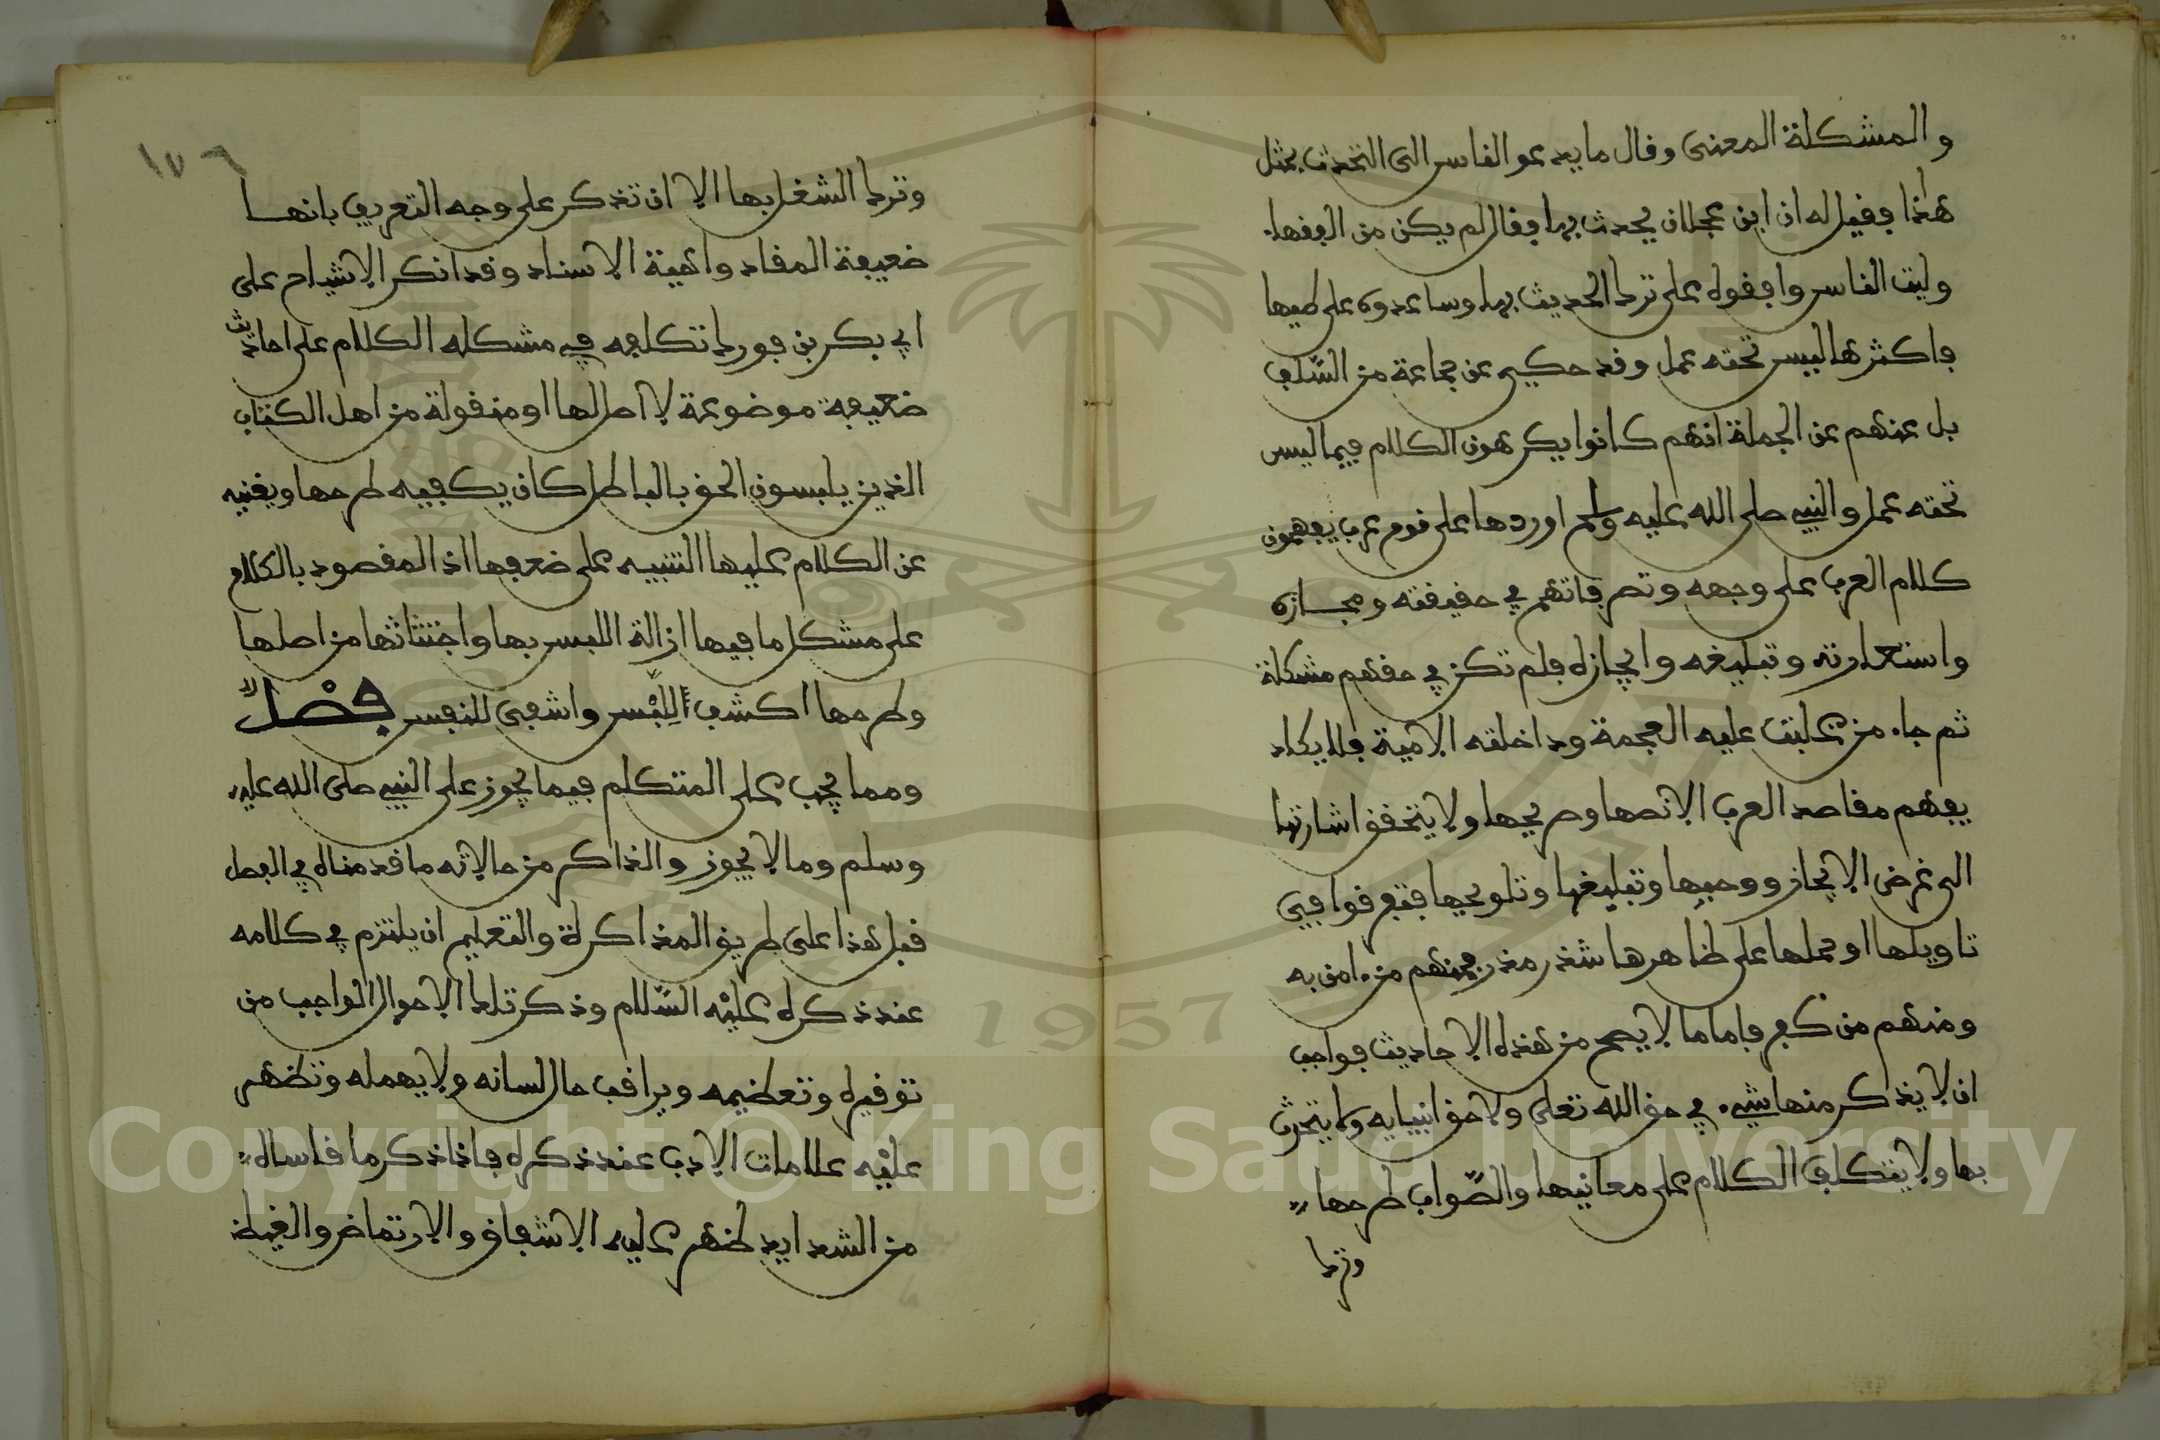 والمشكلة المعنى وقال ما يدعو الناس الى التحدث بمثل
هذا فقيل له ان ابن عجلان يحدث بها فقال لم يكن من الفقهاء
وليت الناس وافقوه على ترك الحديث بها وساعدوه على طيها
فاكثرها ليس تحته عمل وقد حكي عن جماعة من السلف
بل عنهم عن الجملة انهم كانوا يكرهون الكلام فيما ليس
تحته عمل والنبي صلى الله عليه وسلم اوردها على قوم عرب يفهمون
كلام العرب على وجهه وتصرفاتهم في حقيقته ومجازه
واستعارته وتبليغه وايجازه فلم تكن في حقهم مشكلة
ثم جاء من غلبت عليه العجمة وداخلته الامية فلا يكاد
يفهم مقاصد العرب الا نصها وصريحها ولا يتحقق اشارتها
الى غرض الايجاز ووحيها وتبليغها وتلويحها فتفرقوا في
تاويلها او حملها على ظاهرها شذر مذر فمنهم من امن به
ومنهم من كفر فاما ما لا يصح من هذه الاحاديث فواجب
ان لا يذكر منها شيء في حق الله تعلى ولا حق انبيايه ولا يتحدث
بها ولا يتكلف الكلام على معانيها والصواب طرحها
وترك
١٧٦
وترك الشغل بها الا ان تذكر على وجه التعريف بانها
ضعيفة المفاد واهية الاسناد وقد انكر الاشياخ على
ابي بكر بن فورك تكلفه في مشكله الكلام على احاديث
ضعيفة موضوعة لا اصل لها او منقولة من اهل الكتاب
الذين يلبسون الحق بالباطل كان يكفيه طرحها ويغنيه
عن الكلام عليها التنبيه على ضعفها اذ المقصود بالكلام
على مشكل ما فيها ازالة اللبس بها واجتثاثها من اصلها
وطرحها اكشف للبس واشفى للنفس فصل
ومما يجب على المتكلم فيما يجوز على النبي صلى الله عليه
وسلم وما لا يجوز والذاكر من حالاته ما قدمناه في الفصل
قبل هذا على طريق المذاكرة والتعليم ان يلتزم في كلامه
عند ذكره عليه السلام وذكر تلك الاحوال الواجب من
توقيره وتعظيمه ويراقب حال لسانه ولا يهمله وتظهر
عليه علامات الادب عند ذكره فاذا ذكر ما قاساه
من الشدايد ظهر عليه الاشفاق والارتماض والغيظ
Copyright © King Saud University
1957